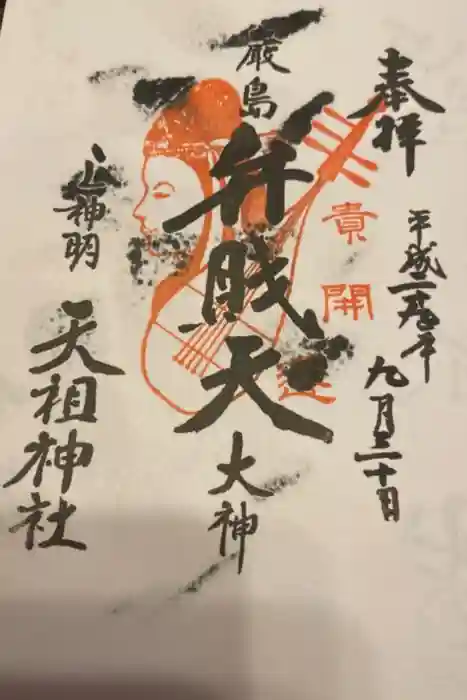 奉拝
平成二十八年
九月三十日
貴
開
運
厳島
弁賊天
大神
心神明
天祖神社